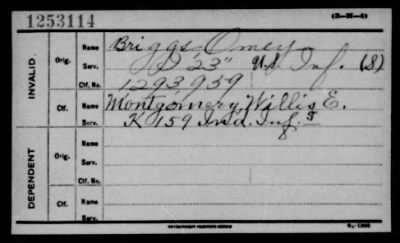 1253114
(3-25-4)
INVALID
Orig. Name Briggs Omey
Serv. D "23" U.S. Inf. (S)
Ctf. No. 1293959
Ctf. Name Montgomery, Willis E.
Serv. K 159 Ind. Inf.
DEPENDENT
Orig. Name
Serv.
Ctf. No.
Ctf. Name
Serv.